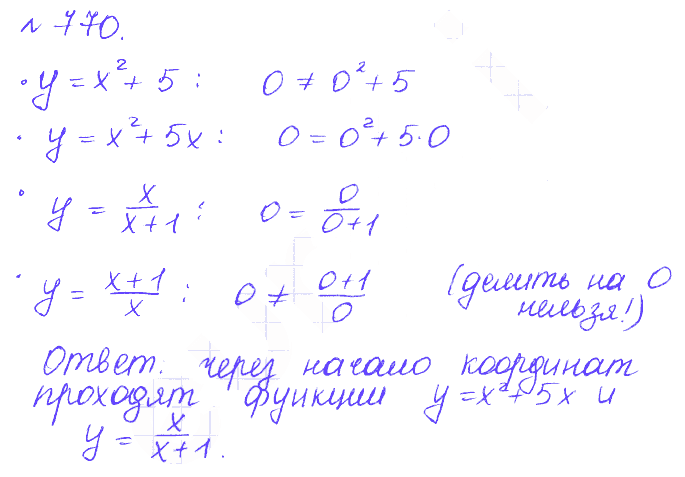 № 770.
· y = x² + 5 : 0 ≠ 0² + 5
· y = x² + 5x : 0 = 0² + 5·0
· y = x/(x+1) : 0 = 0/(0+1)
· y = (x+1)/x : 0 ≠ (0+1)/0 (делить на 0
нельзя!)
Ответ: через начало координат
проходят функции y = x² + 5x и
y = x/(x+1).